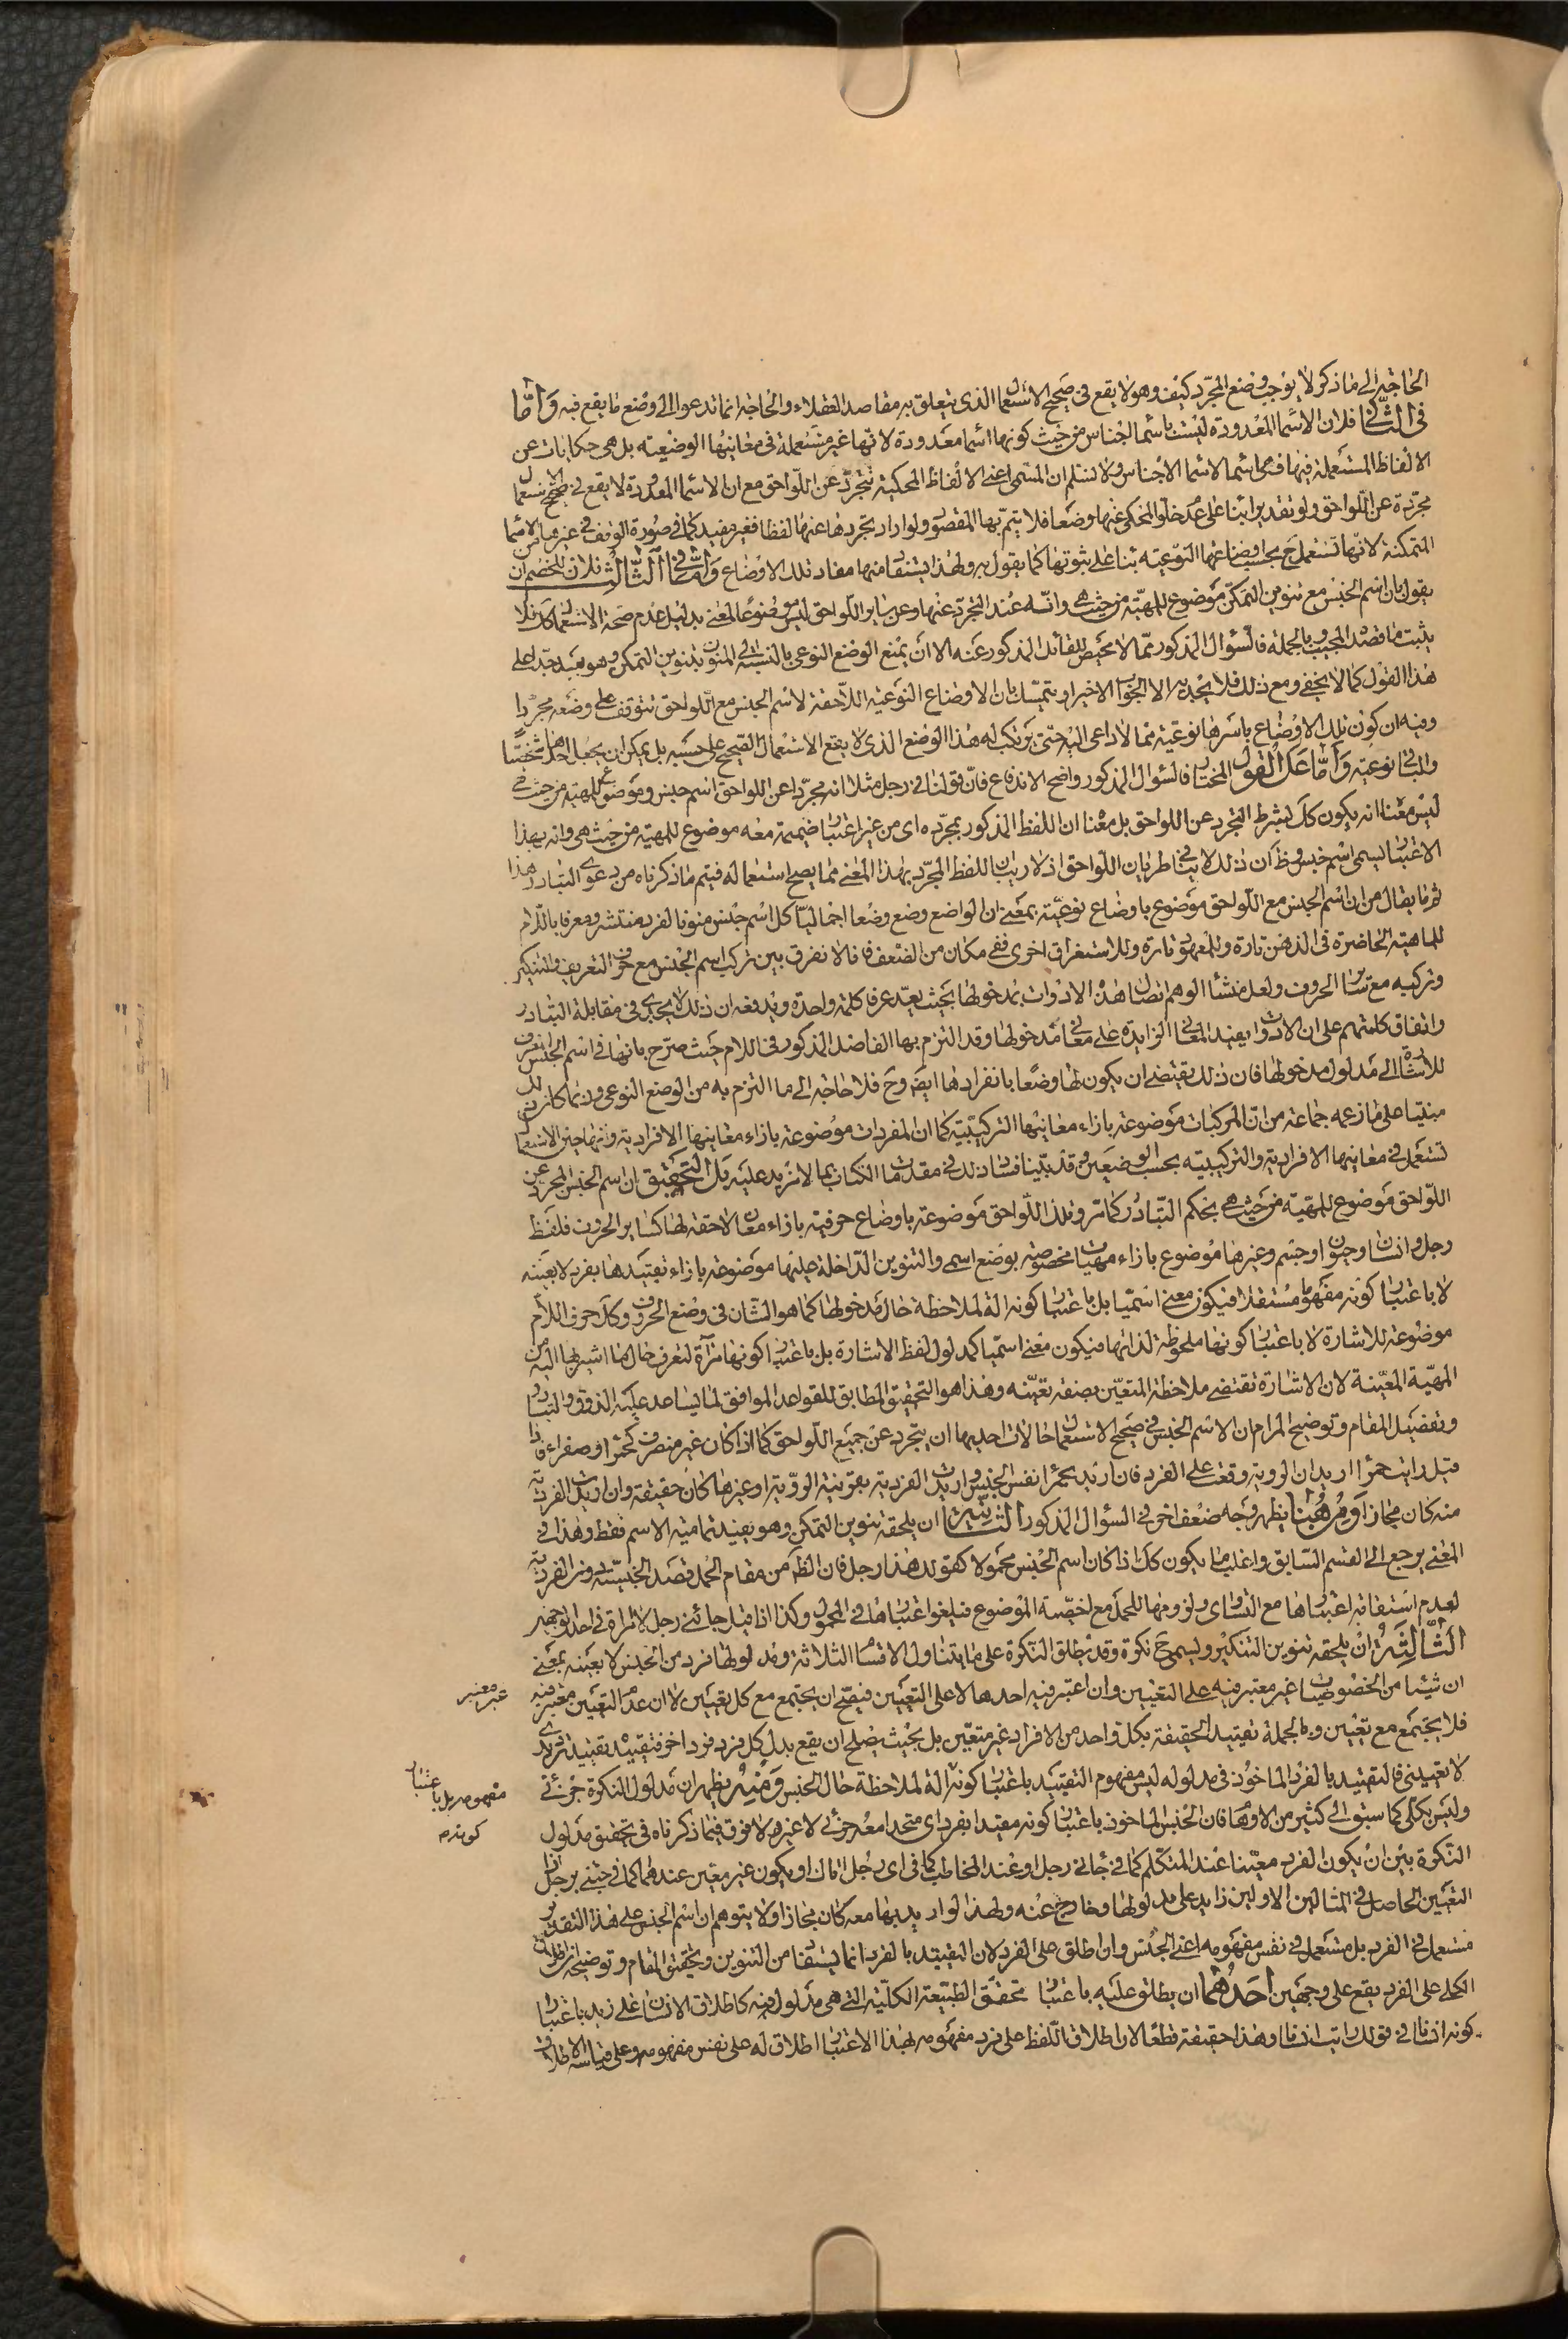 الحاجة الى ما ذكر لا يوجب وضع المجرد كيف وهو لا يقع فى صحيح الاستعمال الذى يتعلق به مقاصد العقلاء والحاجة انما تدعو الى وضع ما يقع فيه وَامّا
فى الثّانى فلان الاسماء المعدودة ليست باسماء اجناس من حيث كونها اسماء معدودة لانها غير مستعملة فى معانيها الوضعيته بل هى حكايات عن
الالفاظ المستعملة فيها فهى اسماء لاسماء الاجناس ولا نسلم ان المسمى اعنى الالفاظ المحكية تتجرد عن اللواحق مع ان الاسماء المعدودة لا يقع فى صحيح الاستعمال
مجردة عن اللواحق ولو تقديرا بناء على عدم خلو المحكى عنها وضعا فلا يتم بها المقصود ولو اراد تجردها عنها لفظا فغير مفيد كما فى صورة الوقف فى غيرها من الاسماء
المتمكنة لانها تستعمل ح بحسب اوضاعها النوعيته بناء على ثبوتها كما يقول به ولهذا يستفاد منها مفاد تلك الاوضاع وَامّا فى الثّالث فلان للخصم ان
يقول بان اسم الجنس مع تنوين التمكن موضوع للمهيّة من حيث هى وانه عند التجرد عنها وعن ساير اللواحق ليس موضوعا لمعنى بدليل عدم صحة الاستعمال كك فلا
يثبت ما قصده المجيب وبالجملة فالسؤال المذكور مما لا محيص للقائل المذكور عنه الا ان يمنع الوضع النوعى بالنسبة الى المنون بتنوين التمكن وهو بعيد جدا على
هذا القول كما لا يخفى ومع ذلك فلا يجديه الا الجواب الاخير او يتمسك بان الاوضاع النوعية اللاحقة لاسم الجنس مع اللواحق تتوقف على وضعه مجردا
وفيه ان كون تلك الاوضاع باسرها نوعية مما لا داعى اليه حتى يرتكب له هذا الوضع الذى لا يقع الاستعمال الصحيح على حسبه بل يمكن ان يجعل احدها شخصيّا
والباقى نوعية وَامّا عَلَى القول المختار فالسؤال المذكور واضح الاندفاع فان قولنا فى رجل مثلا انه مجردا عن اللواحق اسم جنس وموضوع للمهية من حيث هى
ليس معناه انه يكون كك بشرط التجرد عن اللواحق بل معناه ان اللفظ المذكور بمجرده اى من غير اعتبار ضميمة معه موضوع للمهية من حيث هى وانه بهذا
الاعتبار يسمى اسم جنس وظ ان ذلك لا ينافى طريان اللواحق اذ لا ريب ان اللفظ المجرد بهذا المعنى مما يصح استعماله فيتم ما ذكرناه من دعوى التبادر هذا
ثم ما يقال من ان اسم الجنس مع اللواحق موضوع باوضاع نوعيّة بمعنى ان الواضع وضع وضعا اجماليا كل اسم جنس منونا لفرد منتشر ومعرفا باللام
للماهية الحاضرة فى الذهن تارة وللمعهود تارة وللاستغراق اخرى ففى مكان من الضعف فانا لا نفرق بين تركب اسم الجنس مع حرف التعريف والتنكير
وتركبه مع ساير الحروف ولعل منشا الوهم اتصال هذه الادوات بمدخولها بحيث يعد عرفا كلمة واحدة ويدفعه ان ذلك لا يجدى فى مقابلة التبادر
واتفاق كلمتهم على ان الادوات يفيد المعانى الزايدة على معانى مدخولها وقد التزم بها الفاضل المذكور فى اللام حيث صرح بانها فى اسم الجنس المعرف
للاشارة الى مدلول مدخولها فان ذلك يقتضى ان يكون لها وضعا بانفرادها ايضا وح فلا حاجة الى ما التزم به من الوضع النوعى وربما كان ذلك
مبنيا على ما زعمه جماعة من ان المركبات موضوعة بازاء معانيها التركيبية كما ان المفردات موضوعة بازاء معانيها الافرادية وانها حين الاستعمال
تستعمل فى معانيها الافرادية والتركيبيته بحسب الوضعين وقد بينا فساد ذلك فى مقدمات الكتاب بما لا مزيد عليه بَل التحقيق ان اسم الجنس المجرد عن
اللواحق موضوع للمهيّة من حيث هى بحكم التبادر كما مر وتلك اللواحق موضوعة باوضاع حرفية بازاء معان لاحقة لها كساير الحروف فلفظ
رجل وانسان وحيوان او جسم وغيرها موضوع بازاء مهيات مخصوصة بوضع اسمى والتنوين الداخلة عليها موضوعة بازاء تقييدها بفرد لا بعينه
لا باعتبار كونه مفهوما مستقلا فيكون معنى اسميّا بل باعتبار كونه الة لملاحظة حال مدخولها كما هو الشان فى وضع الحروف وكك حرف اللام
موضوعة للاشارة لا باعتبار كونها ملحوظة لذاتها فيكون معنى اسميّا كمدلول لفظ الاشارة بل باعتبار كونها مرآة لتعرف حال ما اشير بها اليه من
المهيّة المعيّنة لان الاشارة تقتضى ملاحظة المتعيّن بصفة تعيّنه وهذا هو التحقيق المطابق للقواعد الموافق لما يساعد عليه الذوق والتبادر
وتفصيل المقام وتوضيح المرام ان لاسم الجنس فى صحيح الاستعمال حالات احديها ان يتجرد عن جميع اللواحق كما اذا كان غير منصرف كحمراء وصفراء فاذا
قيل رايت حمراء اريد ان الروية وقعت على الفرد فان اريد بحمراء نفس الجنس واريدت الفردية بقرينة الرّوية او غيرها كان حقيقة وان اريدت الفردية
منه كان مجازا وَمِنْ هُنا يظهر وجه ضعف اخر فى السؤال المذكور الثّانية ان يلحقه تنوين التمكن وهو يفيد تمامية الاسم فقط وهذا فى
المعنى يرجع الى القسم السابق واغلب ما يكون كك اذا كان اسم الجنس محمولا كقولك هذا رجل فان الظ من مقام الحمل قصد الجنسيّة دون الفردية
لعدم استقامة اعتبارها مع التساوى ولزومها للحمل مع اخصّية الموضوع فيلغوا اعتبارها فى المحمول وكذا اذا قيل جائنى رجل لا امراة فى احد الوجهين
الثّالثَةُ ان يلحقه تنوين التنكير ويسمى ح نكرة وقد يطلق النكرة على ما يتناول الاقسام الثلاثة ومدلولها فرد من الجنس لا بعينه بمعنى
ان شيئا من الخصوصيات غير معتبر فيه على التعيين وان اعتبر فيه احدها لا على التعيين فيصح ان يجتمع مع كل تعيين لا ان عدم التعيين معتبر فيه
غير معتبر
فلا يجتمع مع تعيين وبالجملة تقييد الحقيقة بكل واحد من الافراد غير متعيّن بل بحيث يصلح ان يقع بدل كل فرد فرد اخر فتقييده تقييد ترديدى
لا تعيينى فالتقييد بالفرد الماخوذ فى مدلوله ليس مفهوم التقييد باعتبار كونه الة لملاحظة حال الجنس وَمِنْهُ يظهر ان مدلول النكرة جزئى
مفهومه بل باعتبار
كونه
وليس بكلى كما سبق الى كثير من الاوهام فان الجنس الماخوذ باعتبار كونه مقيدا بفرد اى متحدا معه جزئى لا غير ولا فرق فيما ذكرناه فى تحقيق مدلول
النكرة بين ان يكون الفرد معيّنا عند المتكلم كما فى جائنى رجل او عند المخاطب كما فى اى رجل اتاك او يكون غير معين عندهما كما فى جئنى برجل اذ
التعيين الحاصل فى المثالين الاولين زايد على مدلولها وخارج عنه ولهذا لو اريد بها معه كان مجازا ولا يتوهم ان اسم الجنس على هذا التقدير
مستعمل فى الفرد بل مستعمل فى نفس مفهومه اعنى الجنس وان اطلق على الفرد لان التقييد بالفرد انما يستفاد من التنوين وتحقيق المقام وتوضيحه ان اطلاق
الكلى على الفرد يقع على وجهين اَحَدُهُما ان يطلق عليه باعتبار تحقق الطبيعة الكلّية التى هى مدلوله فيه كاطلاق الانسان على زيد باعتبار
كونه انسانا فى قولك رايت انسانا وهذا حقيقة قطعا لان اطلاق اللفظ على فرد مفهومه بهذا الاعتبار اطلاق له على نفس مفهومه وعلى قياسه الاطلاق